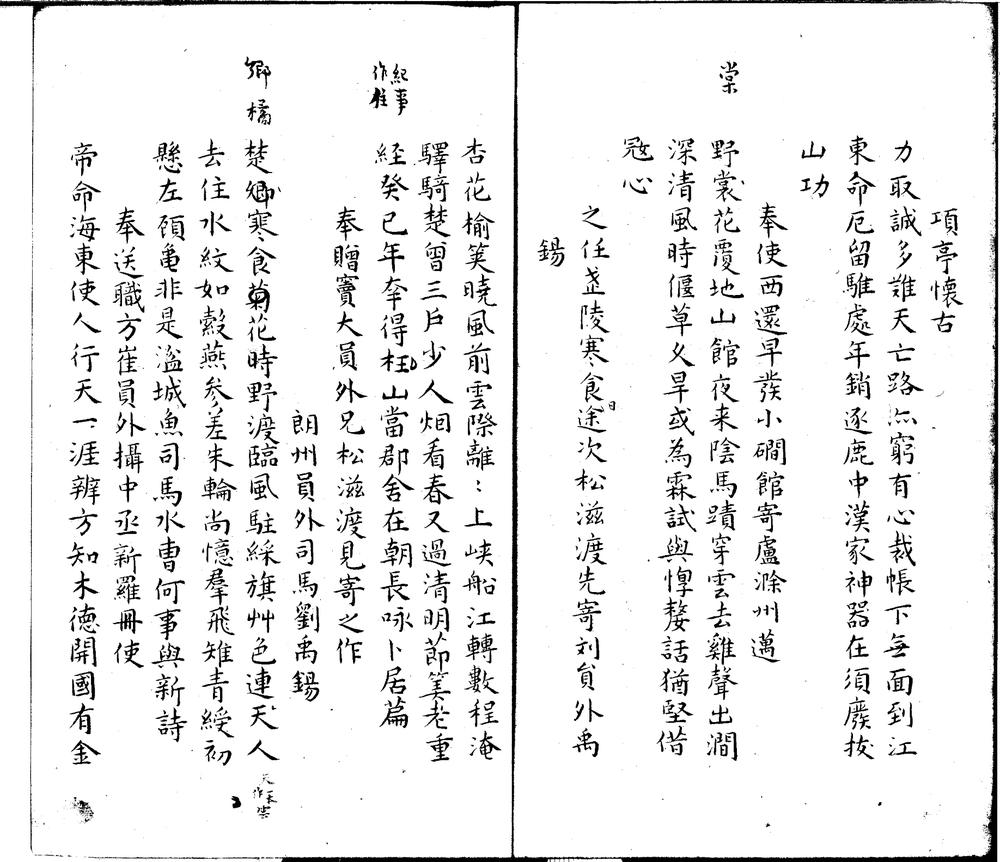 項亭懷古
力取誠多難天亡路亦窮有心裁帳下無面到江
東命厄留騅處年銷逐鹿中漢家神器在須廢拔
山功
奉使西還早發小磵館寄盧滁州邁
棠
野裳花覆地山館夜来陰馬蹟穿雲去雞聲出澗
深清風時偃草久旱或為霖試與惸嫠話猶堅借
㓂心
之任𦮼陵寒食日途次松滋渡先寄刘員外禹
錫
杏花榆筴曉風前雲際離〻上峡船江轉數程淹
驛騎楚曾三戶少人烟看春又過清明節筭老重
紀事
作柱
經癸巳年幸得枉山當郡舍在朝長咏卜居篇
奉贈竇大員外兄松滋渡見寄之作
朗州員外司馬劉禹錫
鄉 橘
楚鄉寒食菊花時野渡臨風駐綵旗艸色連天人
去住水紋如縠燕参差朱輪尚憶羣飛雉青綬初
懸左頋龜非是湓城魚司馬水曺何事與新詩
奉送職方崔員外攝中丞新羅冊使
帝命海東使人行天一涯辨方知木德開國有金